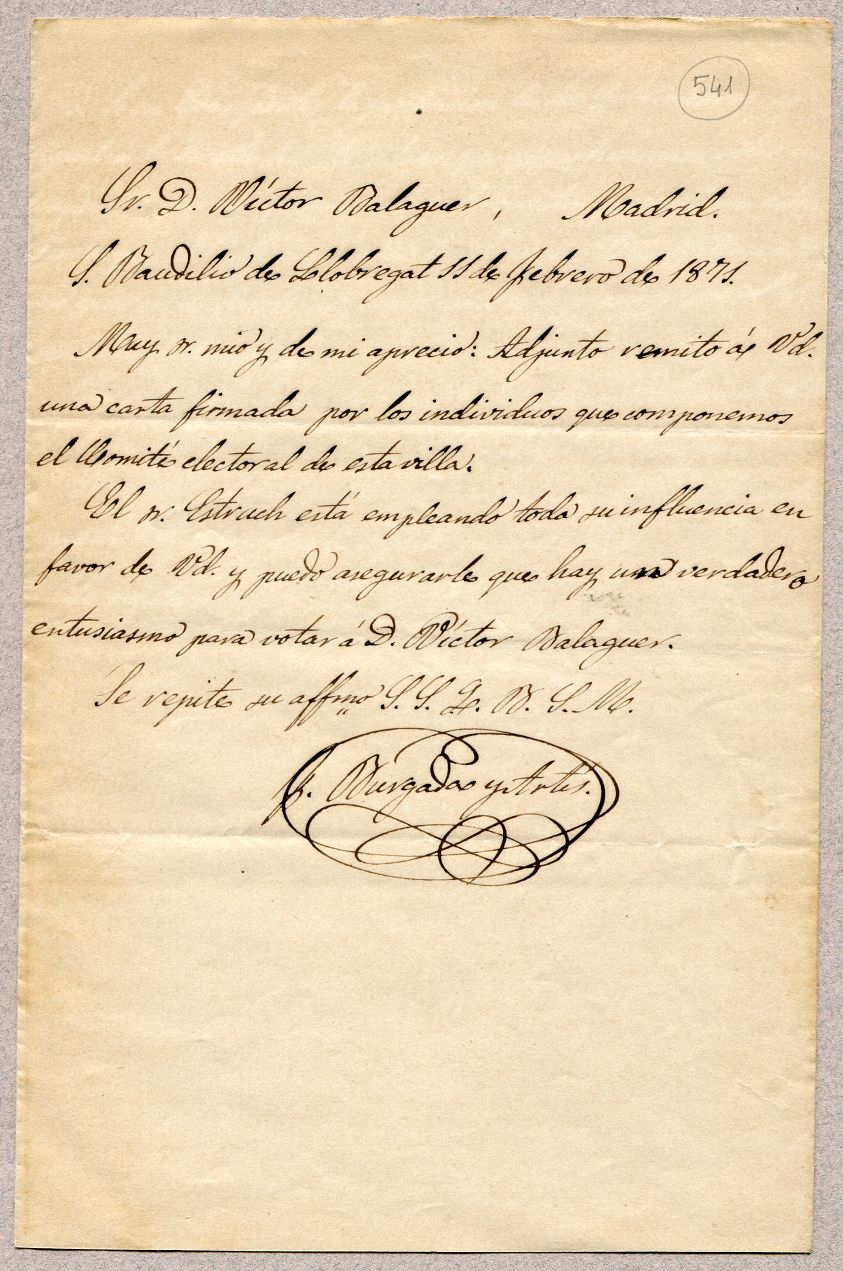 541
Sr. D. Víctor Balaguer, Madrid.
S. Baudilio de Llobregat 11 de febrero de 1871.
Muy sr. mio y de mi aprecio: Adjunto remito á Vd.
una carta firmada por los individuos que componemos
el Comité electoral de esta villa.
El sr. Estruch está empleando toda su influencia en
favor de Vd. y puedo asegurarle que hay un verdadero
entusiasmo para votar á D. Víctor Balaguer.
Se repite su affmo S. S. Q. B. S. M.
F. Burgada y Artés.